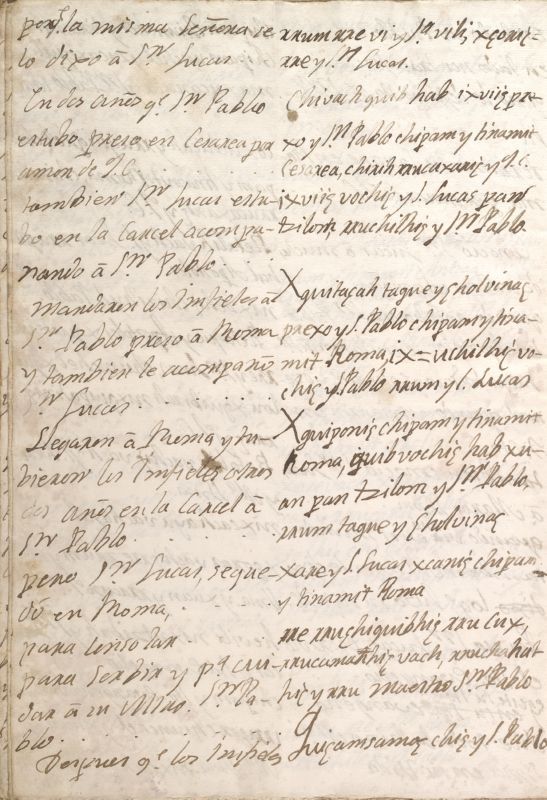 porq̃ la misma Señora se
lo dixo â Sn. Lucas
En dos años q.e Sn. Pablo
estubo preso en Cesarea por
amor de J.C.
tambien Sn. Lucas estu-
bo en la Carcel acompa-
ñando â Sn. Pablo.
Mandaron los Infieles â
Sn. Pablo preso â Roma
y tambien le acompañó
Sn. Luccas
Llegaron â Roma y tu-
bieron los Infieles otros
dos años en la Carcel â
Sn. Pablo.
pero Sn. Lucas, se que-
dó en Roma,
para consolar
para Serbir y p.a cui-
dar â su Mtro. Sn. Pa-
blo.
Despues q.e los Infieles
xe y Sn. Lucas.
Chivach quib hab ixviiꜫ pre-
xo y Sn. Pablo chipam y tinamit
Cesarea, y J.C.
ixviiꜫ vochiꜫ y S. Lucas pam
tzilom, rruchilhiꜫ y Sn. Pablo
Xquitaçah tague y ꜫholvinaꜫ
prexo y S. Pablo chipam y tina-
mit Roma, ix=uchilhiꜫ vo-
chiꜫ y S. Pablo rrum y S. Lucas
Xquiponiꜫ chipam y tinamit
Roma, quib vochiꜫ hab xu-
an pan tzilom y Sn. Pablo,
rrum tague y ꜫholvinaꜫ
xare y S. Lucas xcaniꜫ chipam
y tinamit Roma
rre rruꜫhiquibhiꜫ rru Cux,
vach, rruchahat
hiꜫ y rru maestro Sn. Pablo
chiꜫ y S. Pablo